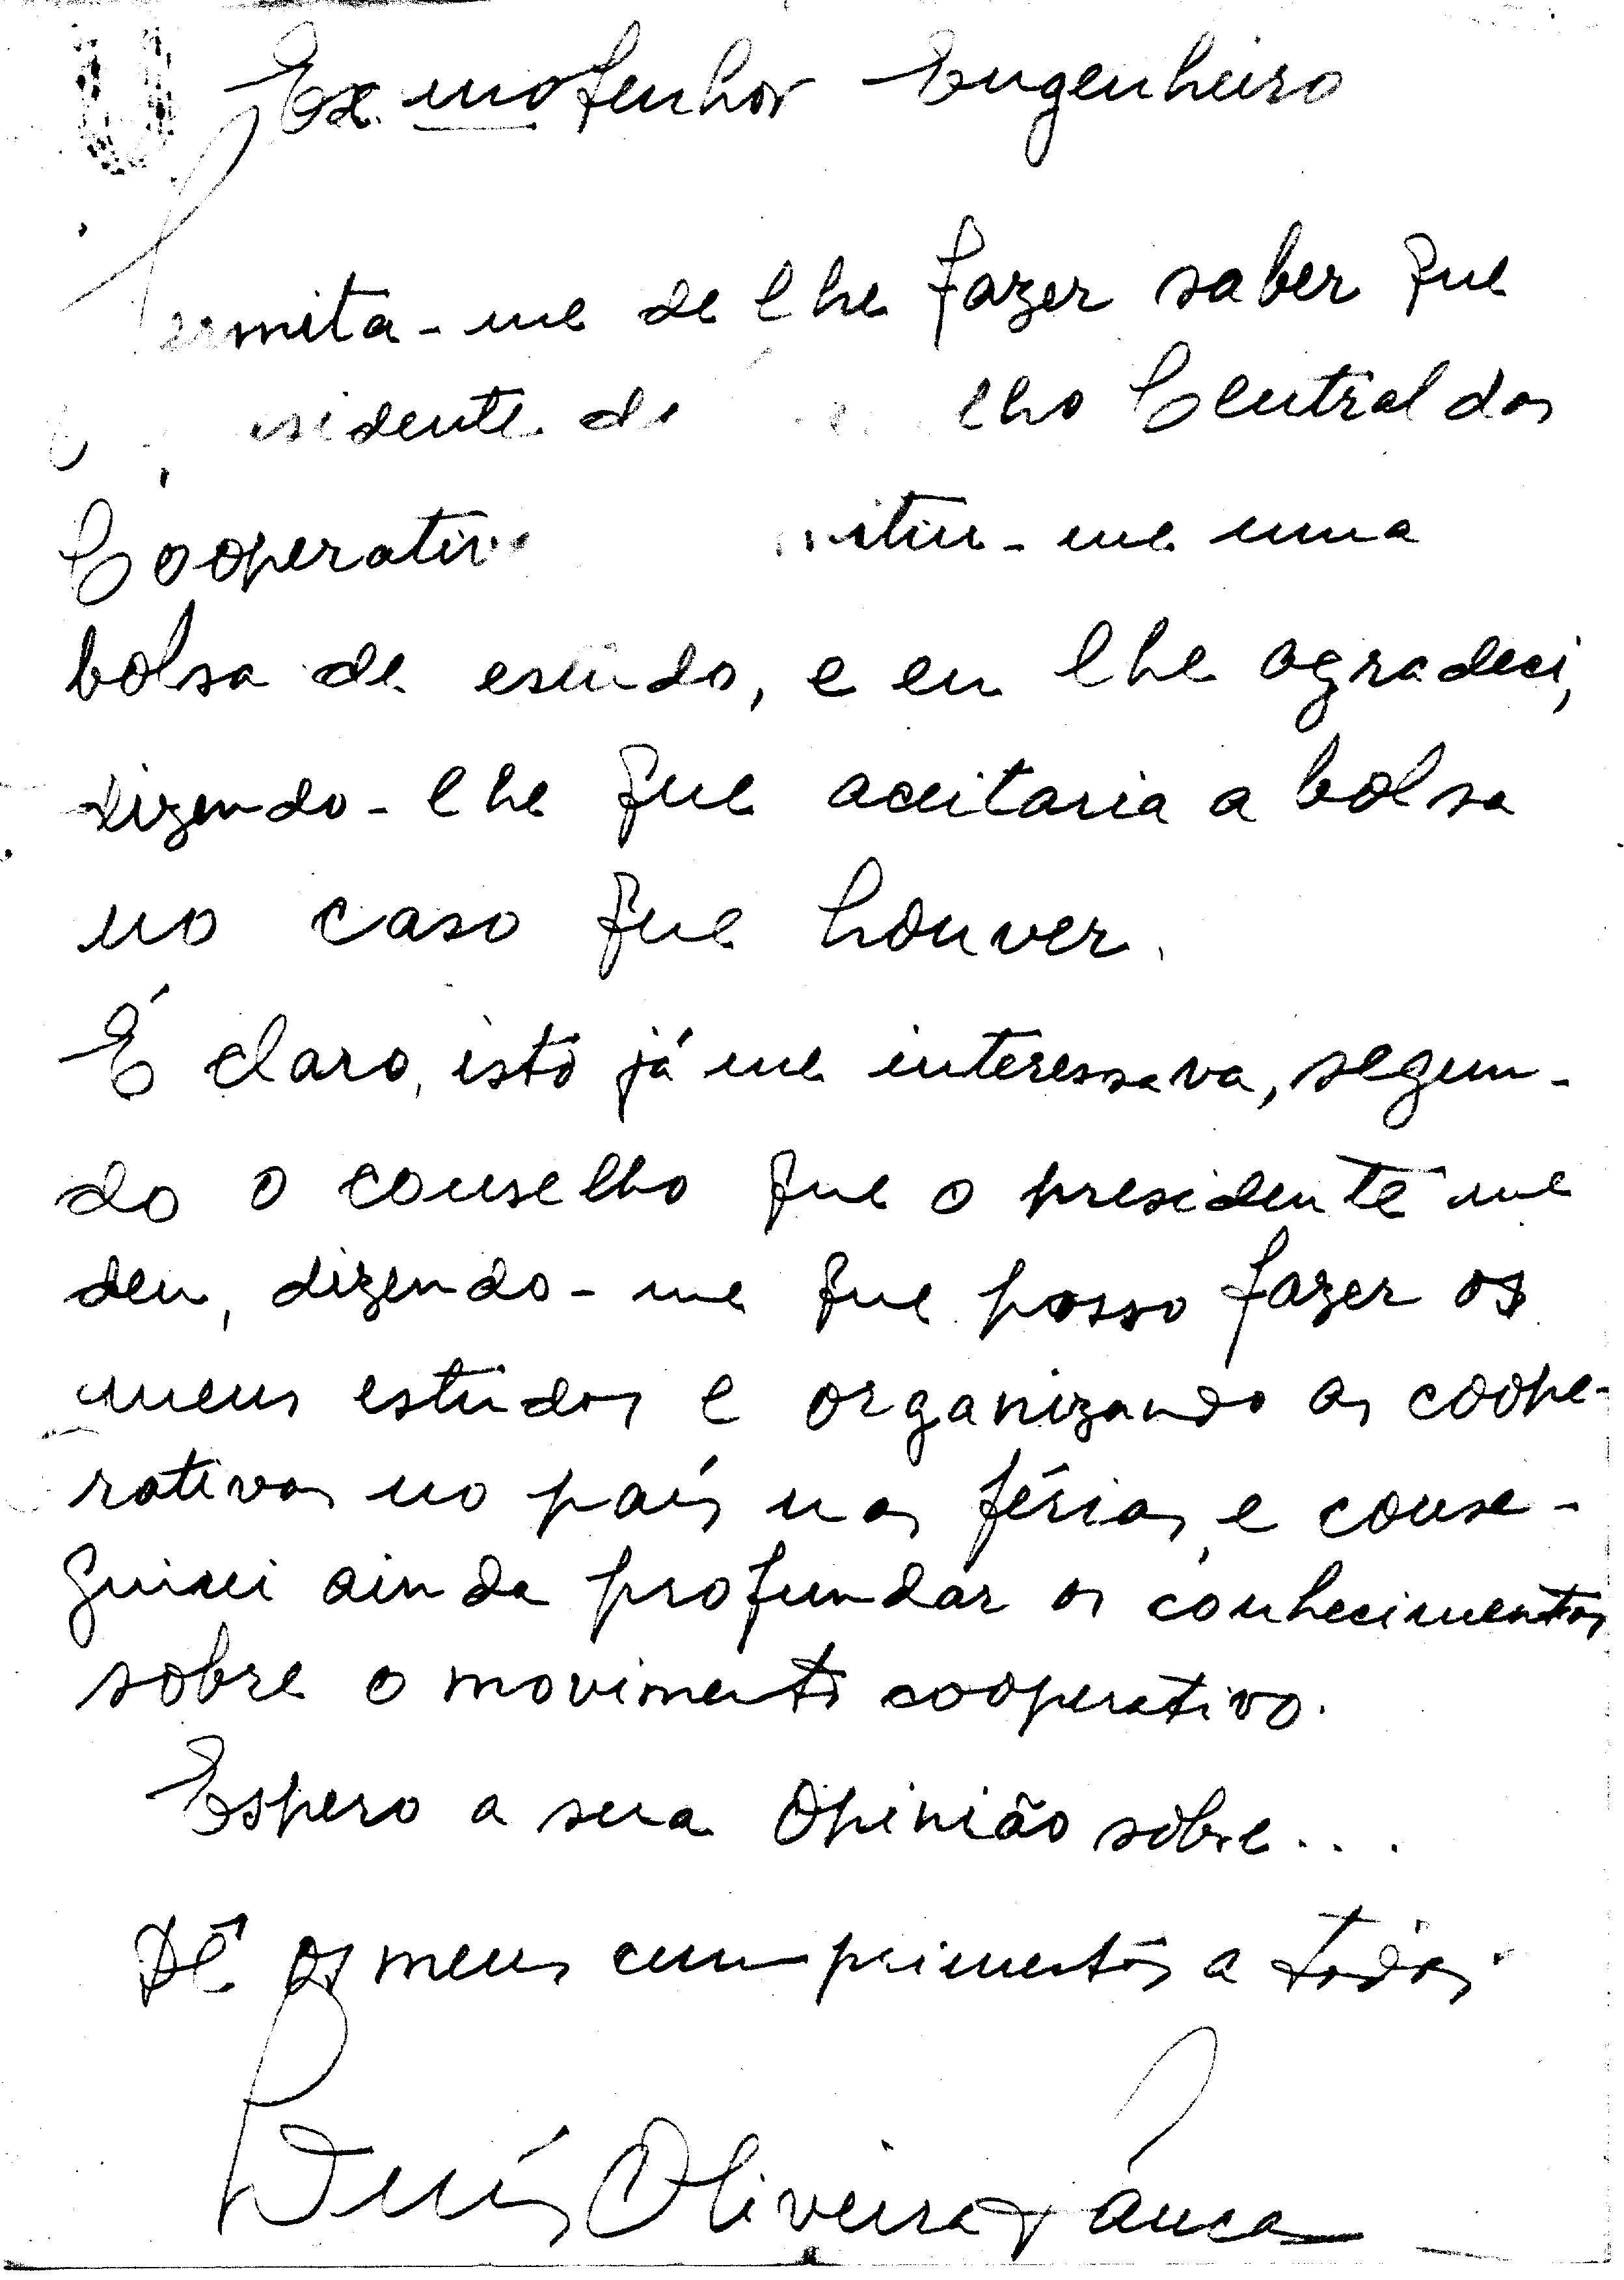 Ex.mo Senhor Engenheiro
Permita-me de lhe fazer saber que
Central dos
uma
bolsa de estudo, e eu lhe agradeci,
dizendo-lhe que aceitaria a bolsa
no caso que houver.
É claro, isto já me interessava, segun-
do o conselho que o presidente me
deu, dizendo-me que posso fazer os
meus estudos e organizando as coope-
rativas no país nas férias, e conse-
guirei ainda profundar os conhecimentos
sobre o movimento cooperativo.
Espero a sua opinião sobre...
Dê os meus cumprimentos a todos.
Oliveira